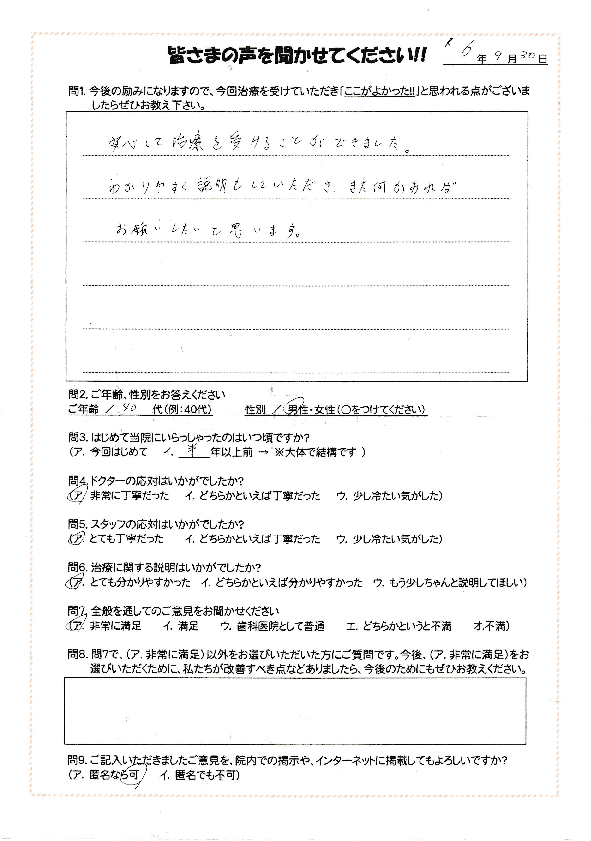 皆さまの声を聞かせてください!!
R 6年 9月30日
問1. 今後の励みになりますので、今回治療を受けていただき「ここがよかった!!」と思われる点がございま
したらぜひお教え下さい。
安心して治療を受けることができました。
わかりやすく説明もしていただき、また何かあれば
お願いしたいと思います。
問2. ご年齢、性別をお答えください
ご年齢 / 40 代(例:40代) 性別 / 男性・女性(○をつけてください)
問3. はじめて当院にいらっしゃったのはいつ頃ですか?
(ア. 今回はじめて イ. 半 年以上前 → ※大体で結構です )
問4. ドクターの応対はいかがでしたか?
(ア. 非常に丁寧だった イ. どちらかといえば丁寧だった ウ. 少し冷たい気がした)
問5. スタッフの応対はいかがでしたか?
(ア. とても丁寧だった イ. どちらかといえば丁寧だった ウ. 少し冷たい気がした)
問6. 治療に関する説明はいかがでしたか?
(ア. とても分かりやすかった イ. どちらかといえば分かりやすかった ウ. もう少しちゃんと説明してほしい)
問7. 全般を通してのご意見をお聞かせください
(ア. 非常に満足 イ. 満足 ウ. 歯科医院として普通 エ. どちらかというと不満 オ.不満)
問8. 問7で、(ア. 非常に満足)以外をお選びいただいた方にご質問です。今後、(ア. 非常に満足)をお
選びいただくために、私たちが改善すべき点などありましたら、今後のためにもぜひお教えください。
問9. ご記入いただきましたご意見を、院内での掲示や、インターネットに掲載してもよろしいですか?
(ア. 匿名なら可 イ. 匿名でも不可)